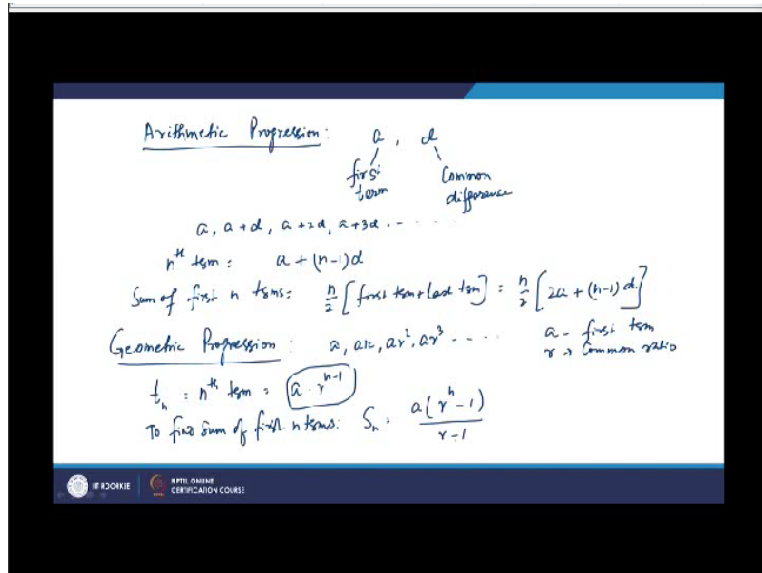 Arithmetic Progression: a, d
first term Common difference
a, a+d, a+2d, a+3d. - . . . .
nth term = a + (n-1)d
Sum of first n terms = n/2 [first term + last term] = n/2 [2a + (n-1)d]
Geometric Progression: a, ar, ar², ar³ - - - . . a - first term
r → Common ratio
tₙ = nth term = a · rⁿ⁻¹
To find sum of first n terms: Sₙ = a(rⁿ-1)/r-1
IIT ROORKEE NPTEL ONLINE CERTIFICATION COURSE